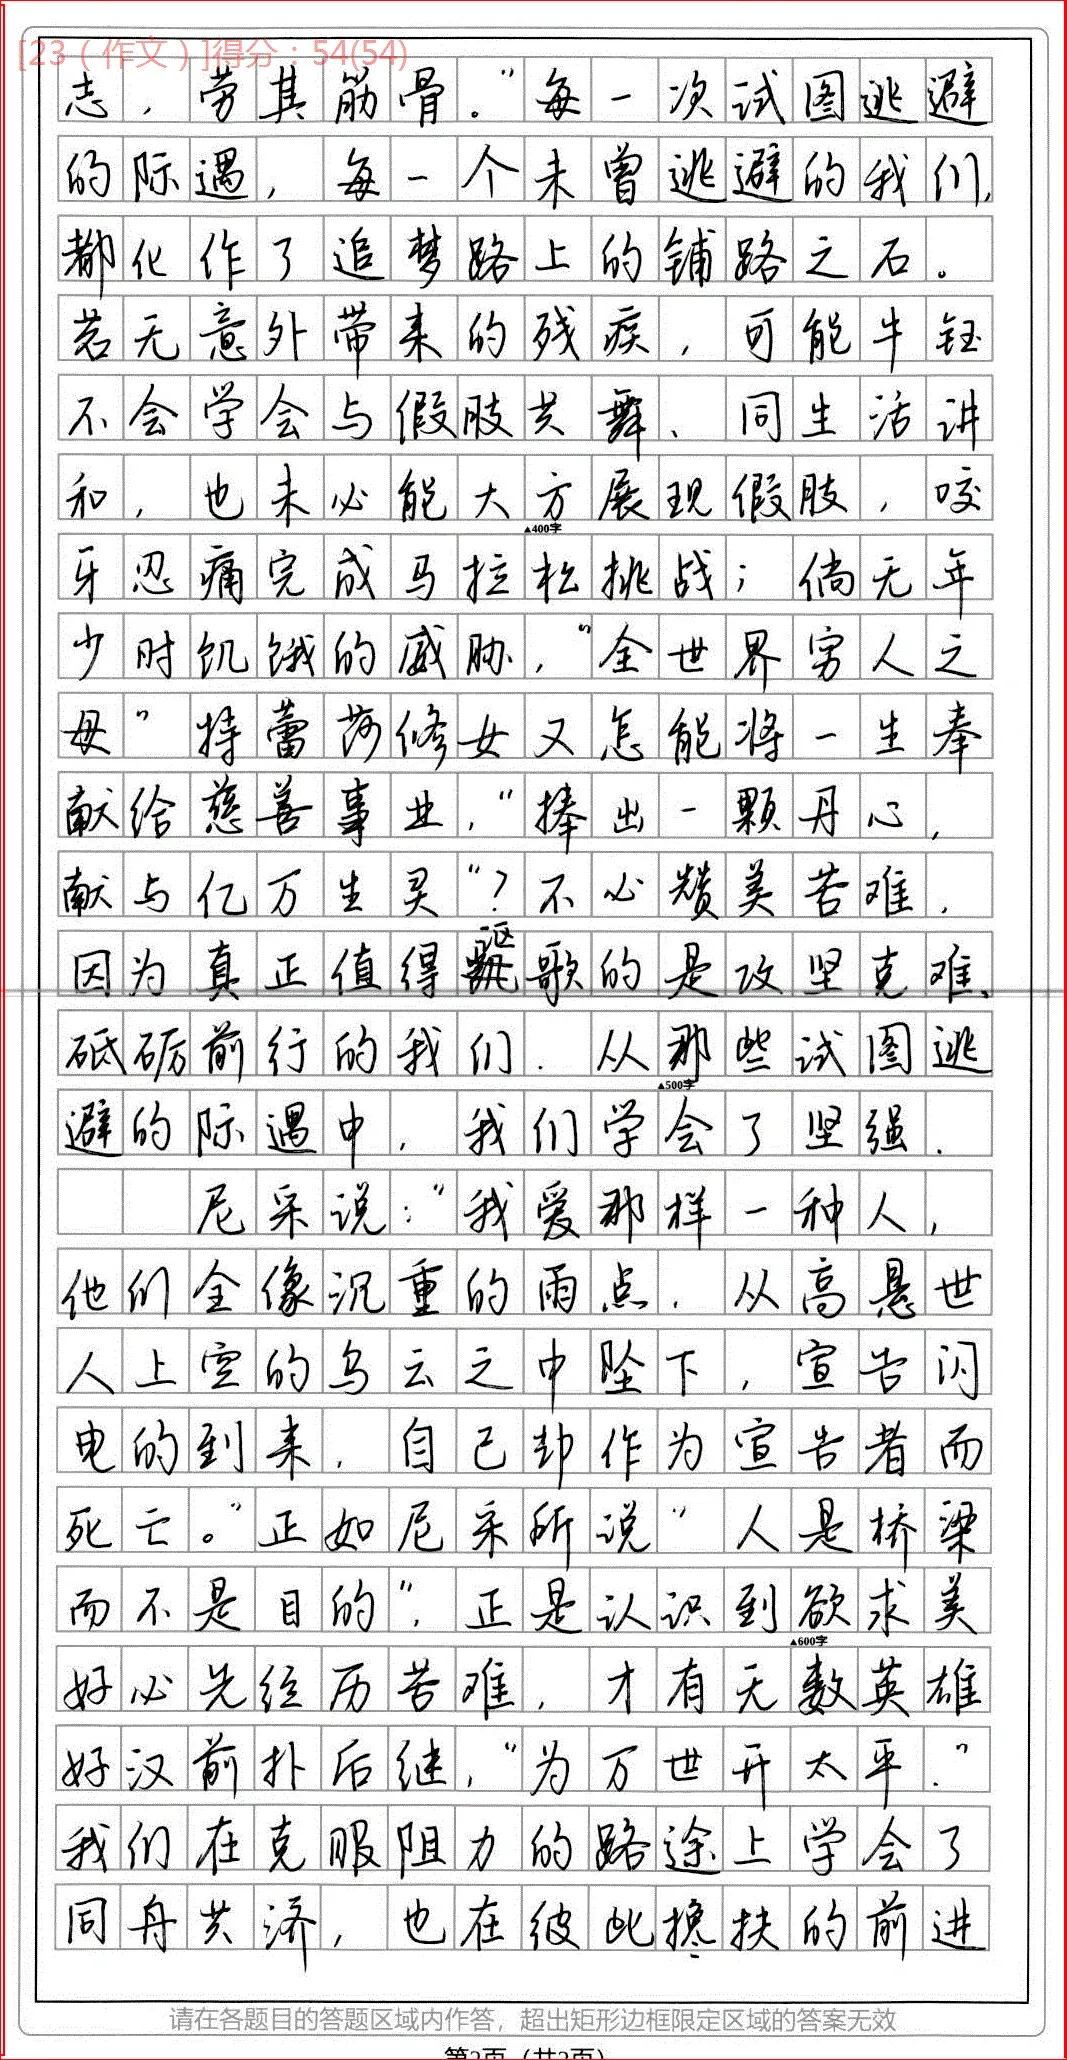 [23（作文）]得分：54(54)
志，劳其筋骨。”每一次试图逃避
的际遇，每一个未曾逃避的我们，
都化作了追梦路上的铺路之石。
若无意外带来的残疾，可能牛钰
不会学会与假肢共舞、同生活讲
和，也未必能大方展现假肢，咬
▲400字
牙忍痛完成马拉松挑战；倘无年
少时饥饿的威胁，“全世界穷人之
母”特蕾莎修女又怎能将一生奉
献给慈善事业，“捧出一颗丹心，
献与亿万生灵”？不必赞美苦难，
因为真正值得讴歌的是攻坚克难、
砥砺前行的我们．从那些试图逃
▲500字
避的际遇中，我们学会了坚强．
尼采说：“我爱那样一种人，
他们全像沉重的雨点．从高悬世
人上空的乌云之中坠下，宣告闪
电的到来．自己却作为宣告者而
死亡。”正如尼采所说“人是桥梁
而不是目的”，正是认识到欲求美
▲600字
好必先经历苦难，才有无数英雄
好汉前扑后继，“为万世开太平．”
我们在克服阻力的路途上学会了
同舟共济，也在彼此搀扶的前进
请在各题目的答题区域内作答，超出矩形边框限定区域的答案无效
第2页（共2页）